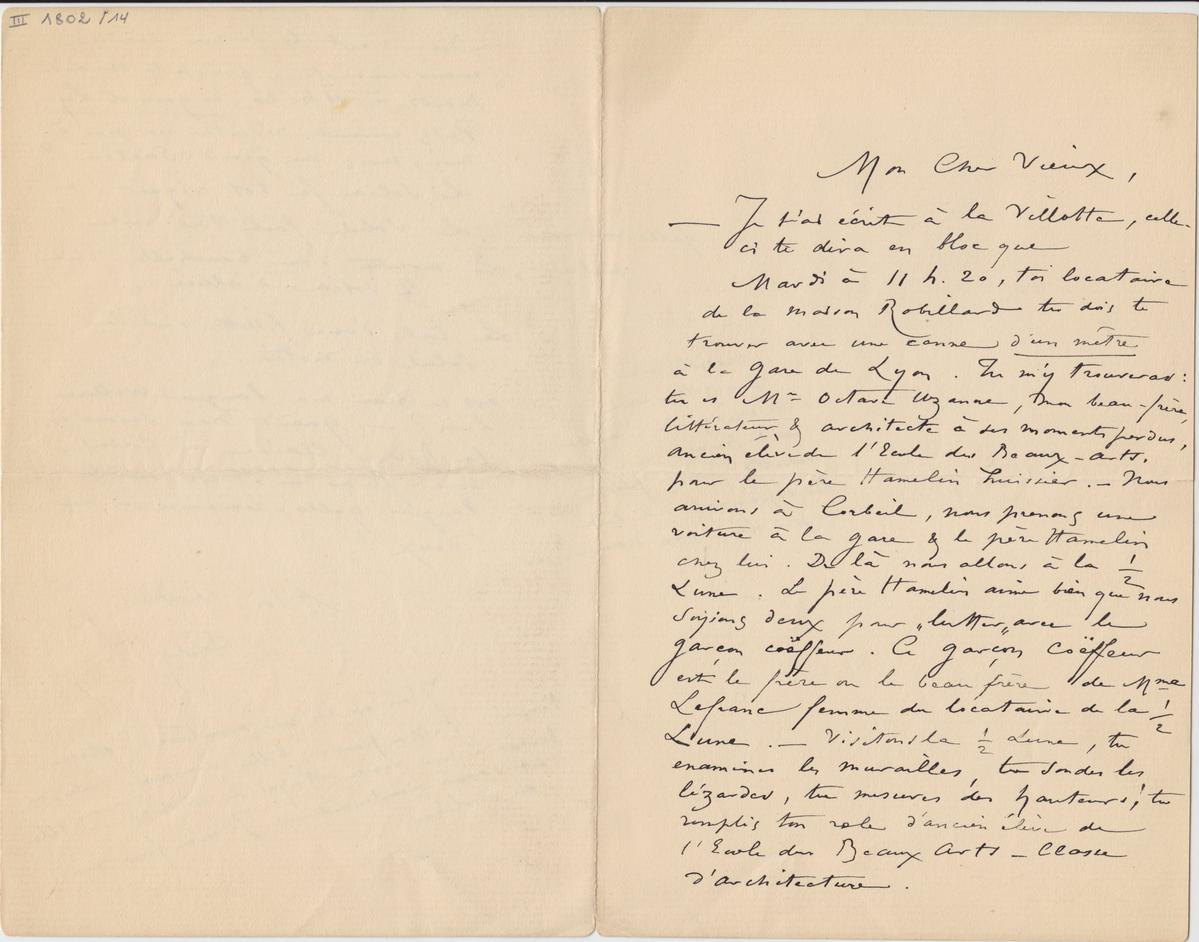 III 1802/14
Mon Cher Vieux,
— Je t'ai écrit à la Villotte, celle-
ci te dira en bloc que
Mardi à 11 h. 20, toi locataire
de la maison Robillard tu dois te
trouver avec une canne d'un mètre
à la gare de Lyon. Tu m'y trouveras :
tu es Mr Octave Uzanne, mon beau-frère,
littérateur & architecte à ses moments perdus,
ancien élève de l'Ecole des Beaux-Arts.
pour le père Hamelin huissier. — Nous
arrivons à Corbeil, nous prenons une
voiture à la gare & le père Hamelin
chez lui. De là nous allons à la 1/2
Lune. Le père Hamelin aime bien que nous
soyions deux pour „lutter„ avec le
garçon coëffeur. Ce garçon coëffeur
est le frère ou le beau frère de Mme
Lefranc femme du locataire de la 1/2
Lune. — Visitons la 1/2 Lune, tu
examines les murailles, tu sondes les
lézardes, tu mesures des hauteurs, tu
remplis ton role d'ancien élève de
l'Ecole des Beaux Arts — Classe
d'architecture.